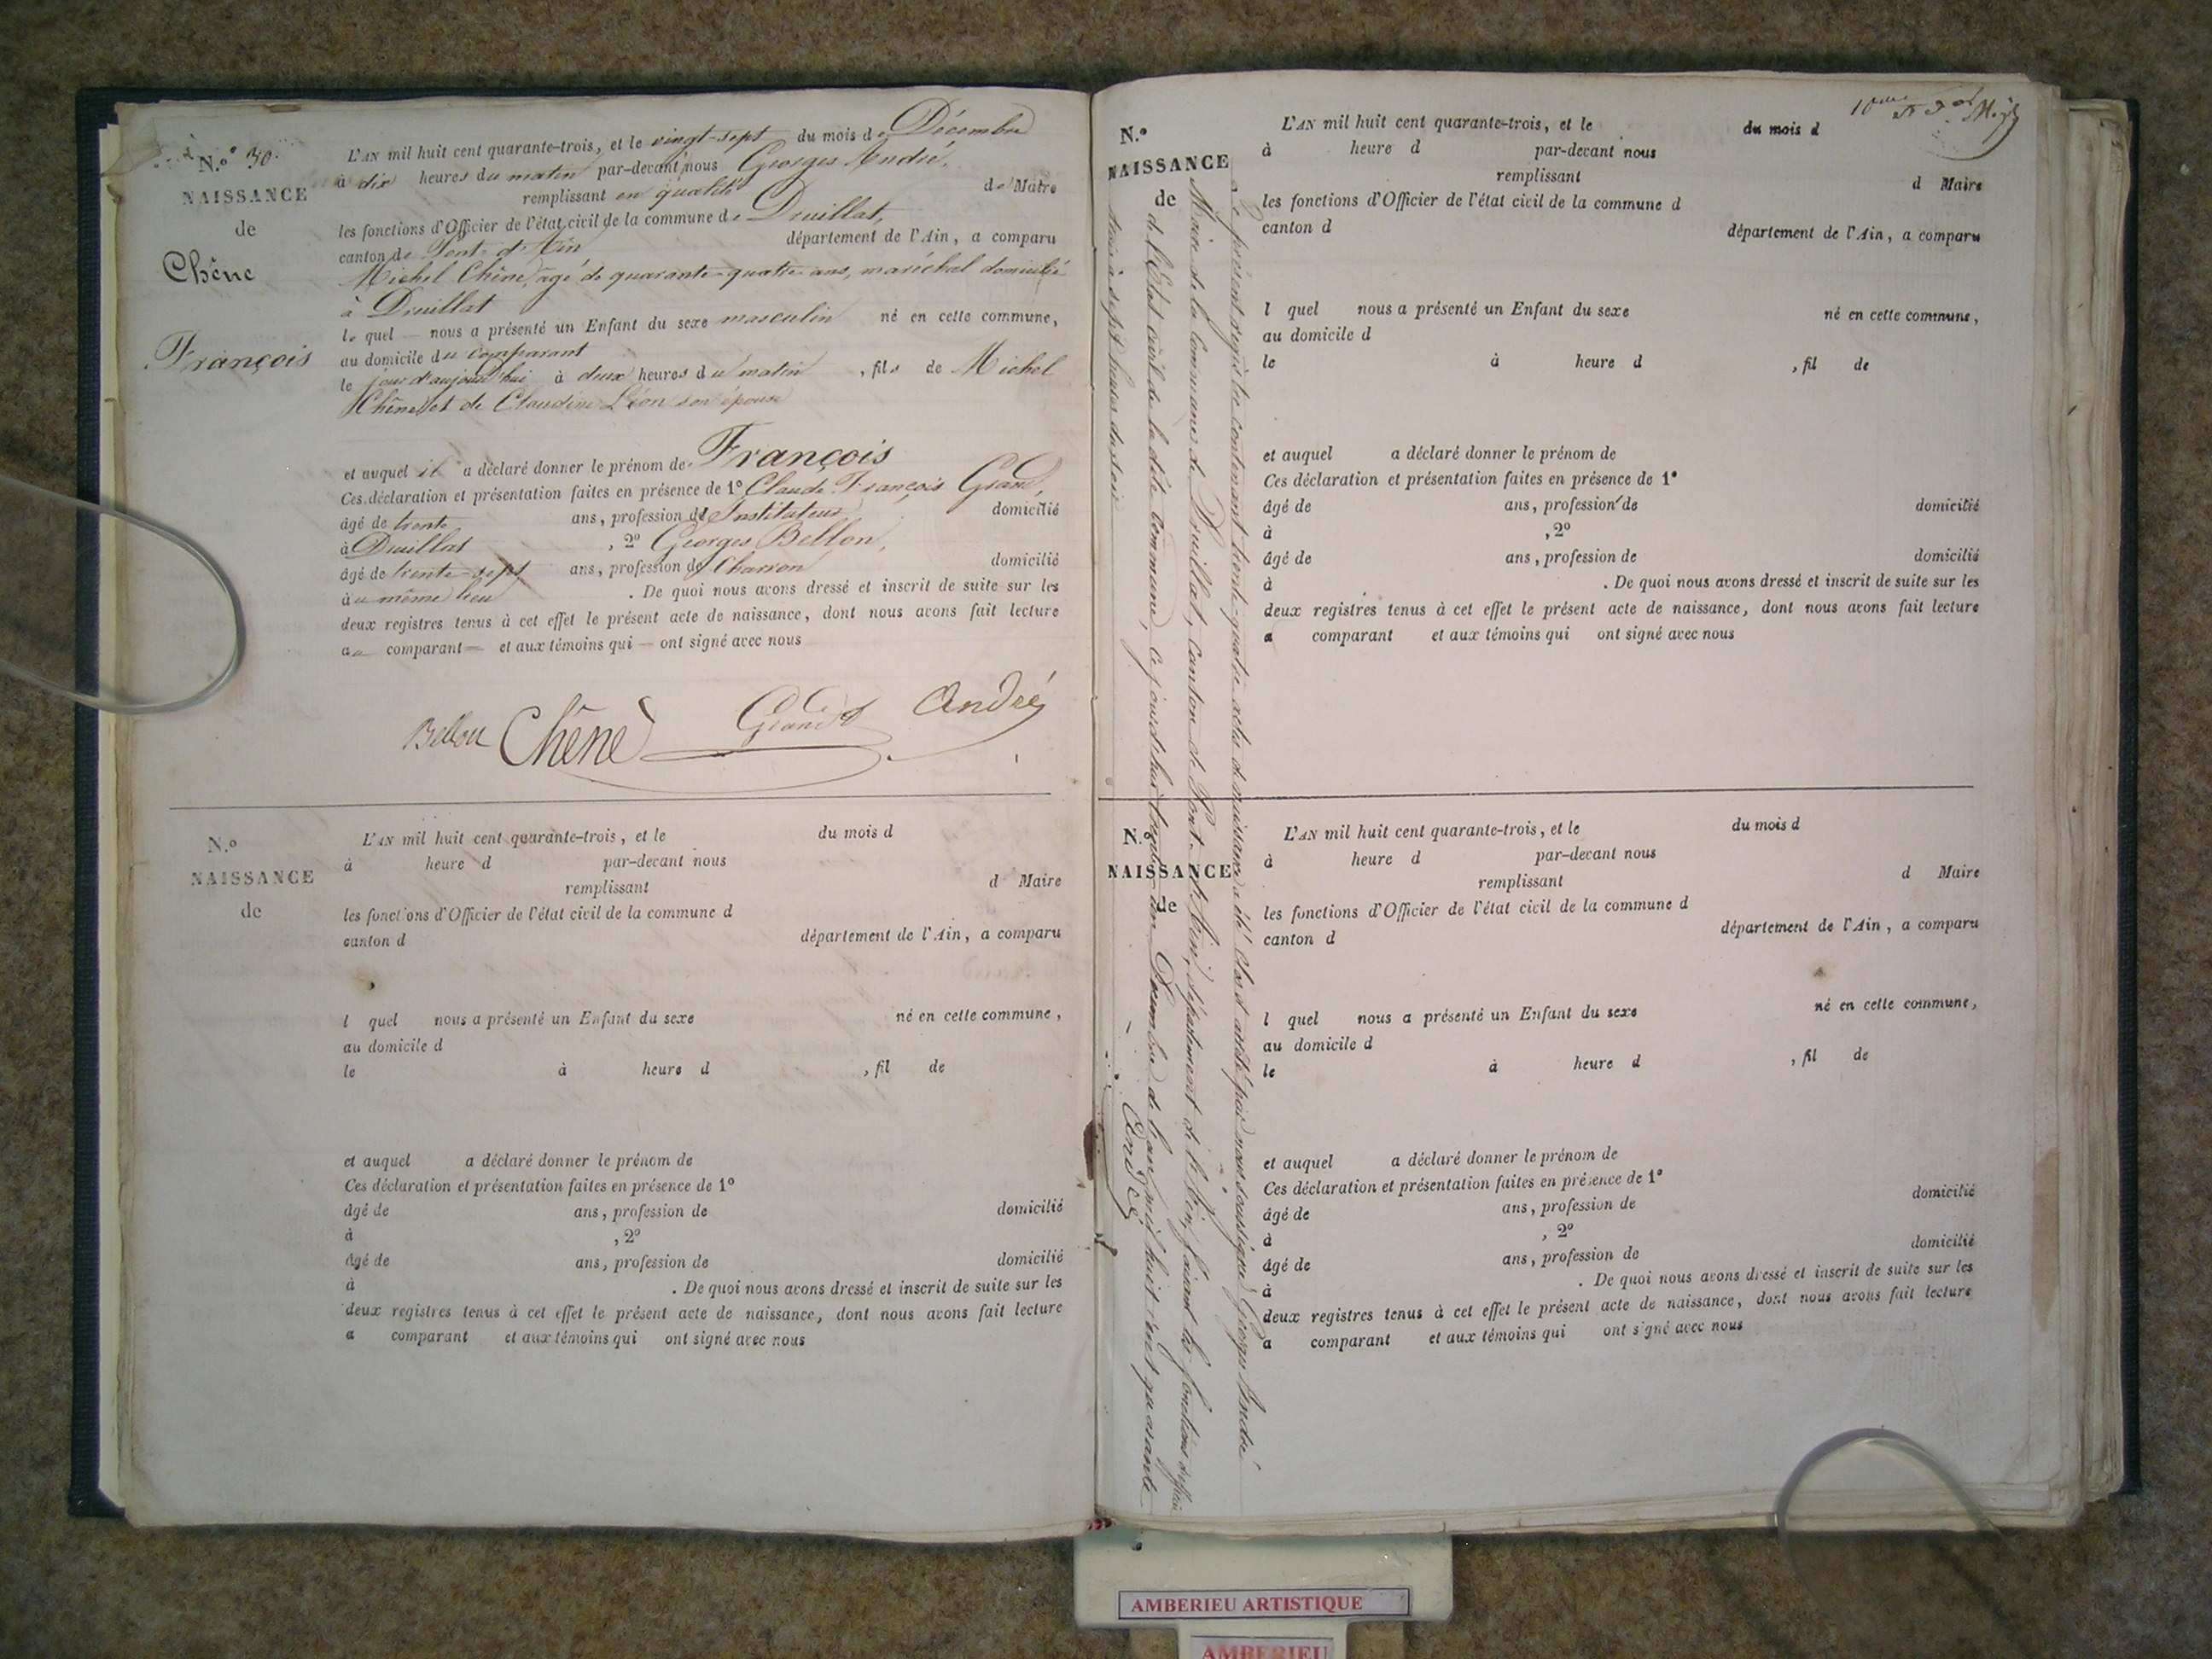 N.º 30.
NAISSANCE
de
Chêne
François
L'AN mil huit cent quarante-trois, et le vingt-sept du mois de Décembre
à dix heures du matin par-devant nous Georges André,
remplissant en qualité de Maire
les fonctions d'Officier de l'état civil de la commune de Druillat,
canton de Pont-d'Ain département de l'Ain, a comparu
Michel Chêne, âgé de quarante-quatre ans, maréchal domicilié
à Druillat
le quel — nous a présenté un Enfant du sexe masculin né en cette commune,
au domicile du comparant
le jour d'aujourd'hui à deux heures du matin , fils de Michel
Chêne et de Claudine Léon son épouse
et auquel il a déclaré donner le prénom de François
Ces déclaration et présentation faites en présence de 1º Claude François Grand,
âgé de trente ans, profession d'Instituteur domicilié
à Druillat , 2º Georges Bellon,
âgé de trente-sept ans, profession de Charron domicilié
au même lieu . De quoi nous avons dressé et inscrit de suite sur les
deux registres tenus à cet effet le présent acte de naissance, dont nous avons fait lecture
au comparant — et aux témoins qui — ont signé avec nous
Bellon Chêne Grand André
N.º
NAISSANCE
de
L'AN mil huit cent quarante-trois, et le du mois d
à heure d par-devant nous
remplissant d Maire
les fonctions d'Officier de l'état civil de la commune d
canton d département de l'Ain, a comparu
l quel nous a présenté un Enfant du sexe né en cette commune,
au domicile d
le à heure d , fil de
et auquel a déclaré donner le prénom de
Ces déclaration et présentation faites en présence de 1º
âgé de ans, profession de domicilié
à , 2º
âgé de ans, profession de domicilié
à . De quoi nous avons dressé et inscrit de suite sur les
deux registres tenus à cet effet le présent acte de naissance, dont nous avons fait lecture
a comparant et aux témoins qui ont signé avec nous
N.º
NAISSANCE
de
L'AN mil huit cent quarante-trois, et le du mois d
à heure d par-devant nous
remplissant d Maire
les fonctions d'Officier de l'état civil de la commune d
canton d département de l'Ain, a comparu
l quel nous a présenté un Enfant du sexe né en cette commune,
au domicile d
le à heure d , fil de
et auquel a déclaré donner le prénom de
Ces déclaration et présentation faites en présence de 1º
âgé de ans, profession de domicilié
à , 2º
âgé de ans, profession de domicilié
à . De quoi nous avons dressé et inscrit de suite sur les
deux registres tenus à cet effet le présent acte de naissance, dont nous avons fait lecture
a comparant et aux témoins qui ont signé avec nous
Le présent registre contenant trente-quatre actes de naissance a été clos et arrêté par nous soussigné Georges André
Maire de la Commune de Druillat, Canton de Pont-d'Ain, département de l'Ain, faisant les fonctions d'officier
de l'Etat civil de la dite commune, ce jourd'hui trente-un Décembre de l'an mil huit cent quarante
trois à sept heures du soir
André
N.º
NAISSANCE
de
L'AN mil huit cent quarante-trois, et le du mois d
à heure d par-devant nous
remplissant d Maire
les fonctions d'Officier de l'état civil de la commune d
canton d département de l'Ain, a comparu
l quel nous a présenté un Enfant du sexe né en cette commune,
au domicile d
le à heure d , fil de
et auquel a déclaré donner le prénom de
Ces déclaration et présentation faites en présence de 1º
âgé de ans, profession de domicilié
à , 2º
âgé de ans, profession de domicilié
à . De quoi nous avons dressé et inscrit de suite sur les
deux registres tenus à cet effet le présent acte de naissance, dont nous avons fait lecture
a comparant et aux témoins qui ont signé avec nous
AMBERIEU ARTISTIQUE
AMBERIEU